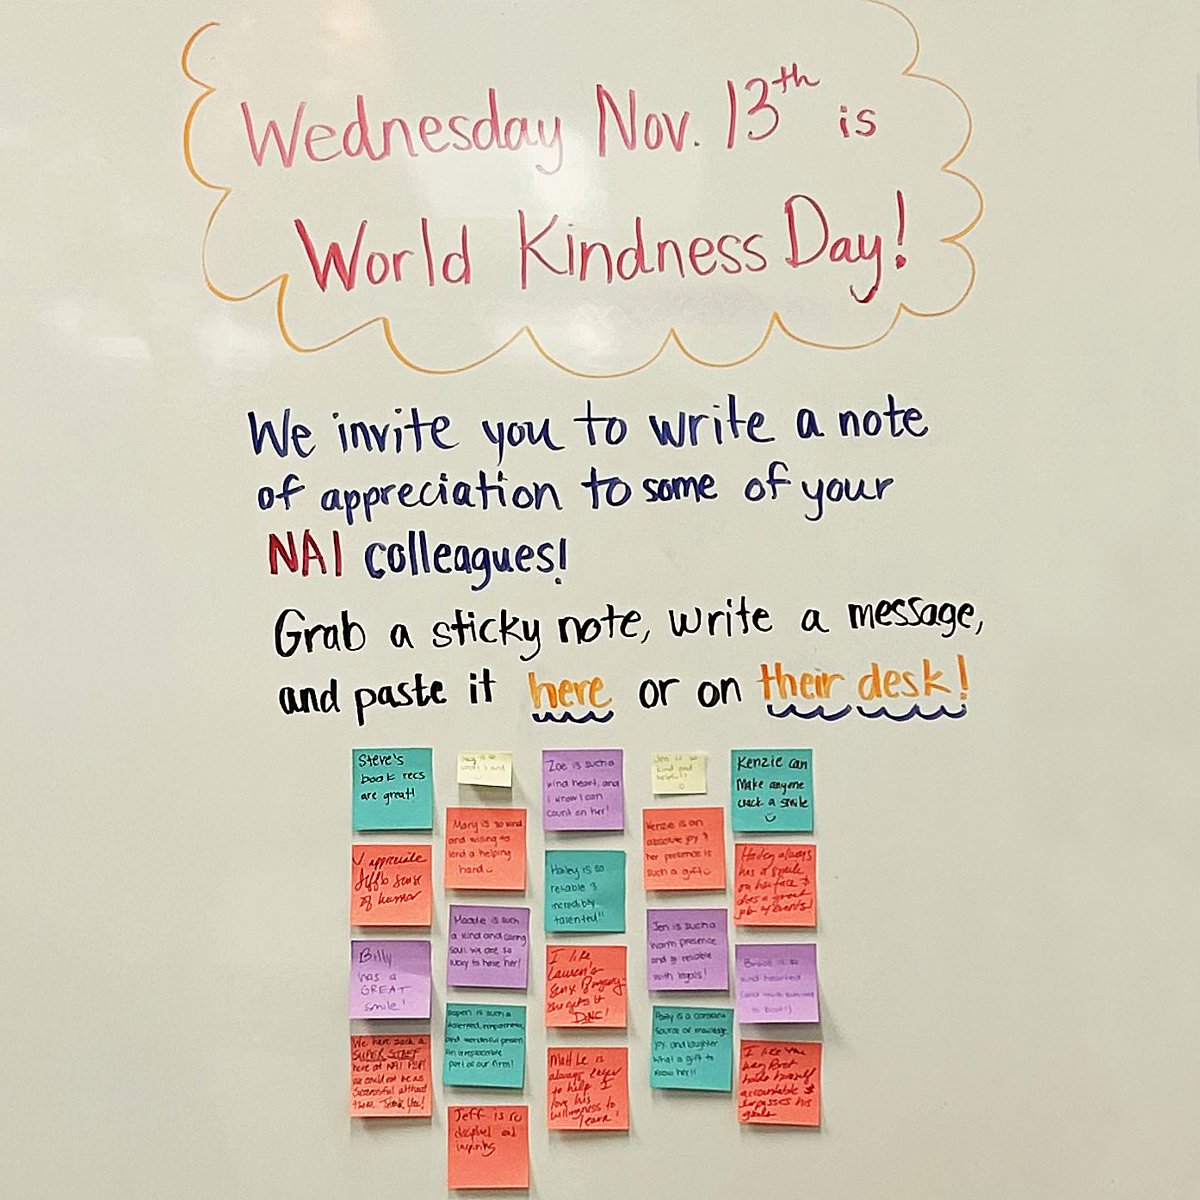 Wednesday Nov. 13th is
World Kindness Day!
We invite you to write a note
of appreciation to some of your
NAI colleagues!
Grab a sticky note, write a message,
and paste it here or on their desk!
Steve's
book recs
are great!
I appreciate
sense
of humor
Billy
has a
GREAT
smile!
We have such a
SUPER STAFF
here at NAI
we could not be as
successful without
them. Thank You!
is so
Mary is so kind
and willing to
lend a helping
hand
Maddie is such
a kind and caring
soul. We are so
lucky to have her!
Aspen is such a
talented,
and wonderful person.
An irreplaceable
part of our firm!
Jeff is so
disciplined and
inspiring
Zoe is such a
kind heart, and
I know I can
count on her!
Hailey is so
reliable &
incredibly
talented!!
I like
Lauren's
she gets it
DONE!
Matt Le is
always eager
to help. I
love his
willingness to
learn!
Jen is so
kind and
helpful!
Kenzie is an
absolute joy &
her presence is
such a gift
Jen is such a
warm presence
and so reliable
with legals!
is a constant
source of
joy, and laughter.
What a gift to
know her!!
Kenzie can
make anyone
crack a smile
Hailey always
has a smile
on her face &
does a great
job w/ events!
is so
kind hearted
I like the
way Bret
holds himself
accountable &
surpasses his
goals